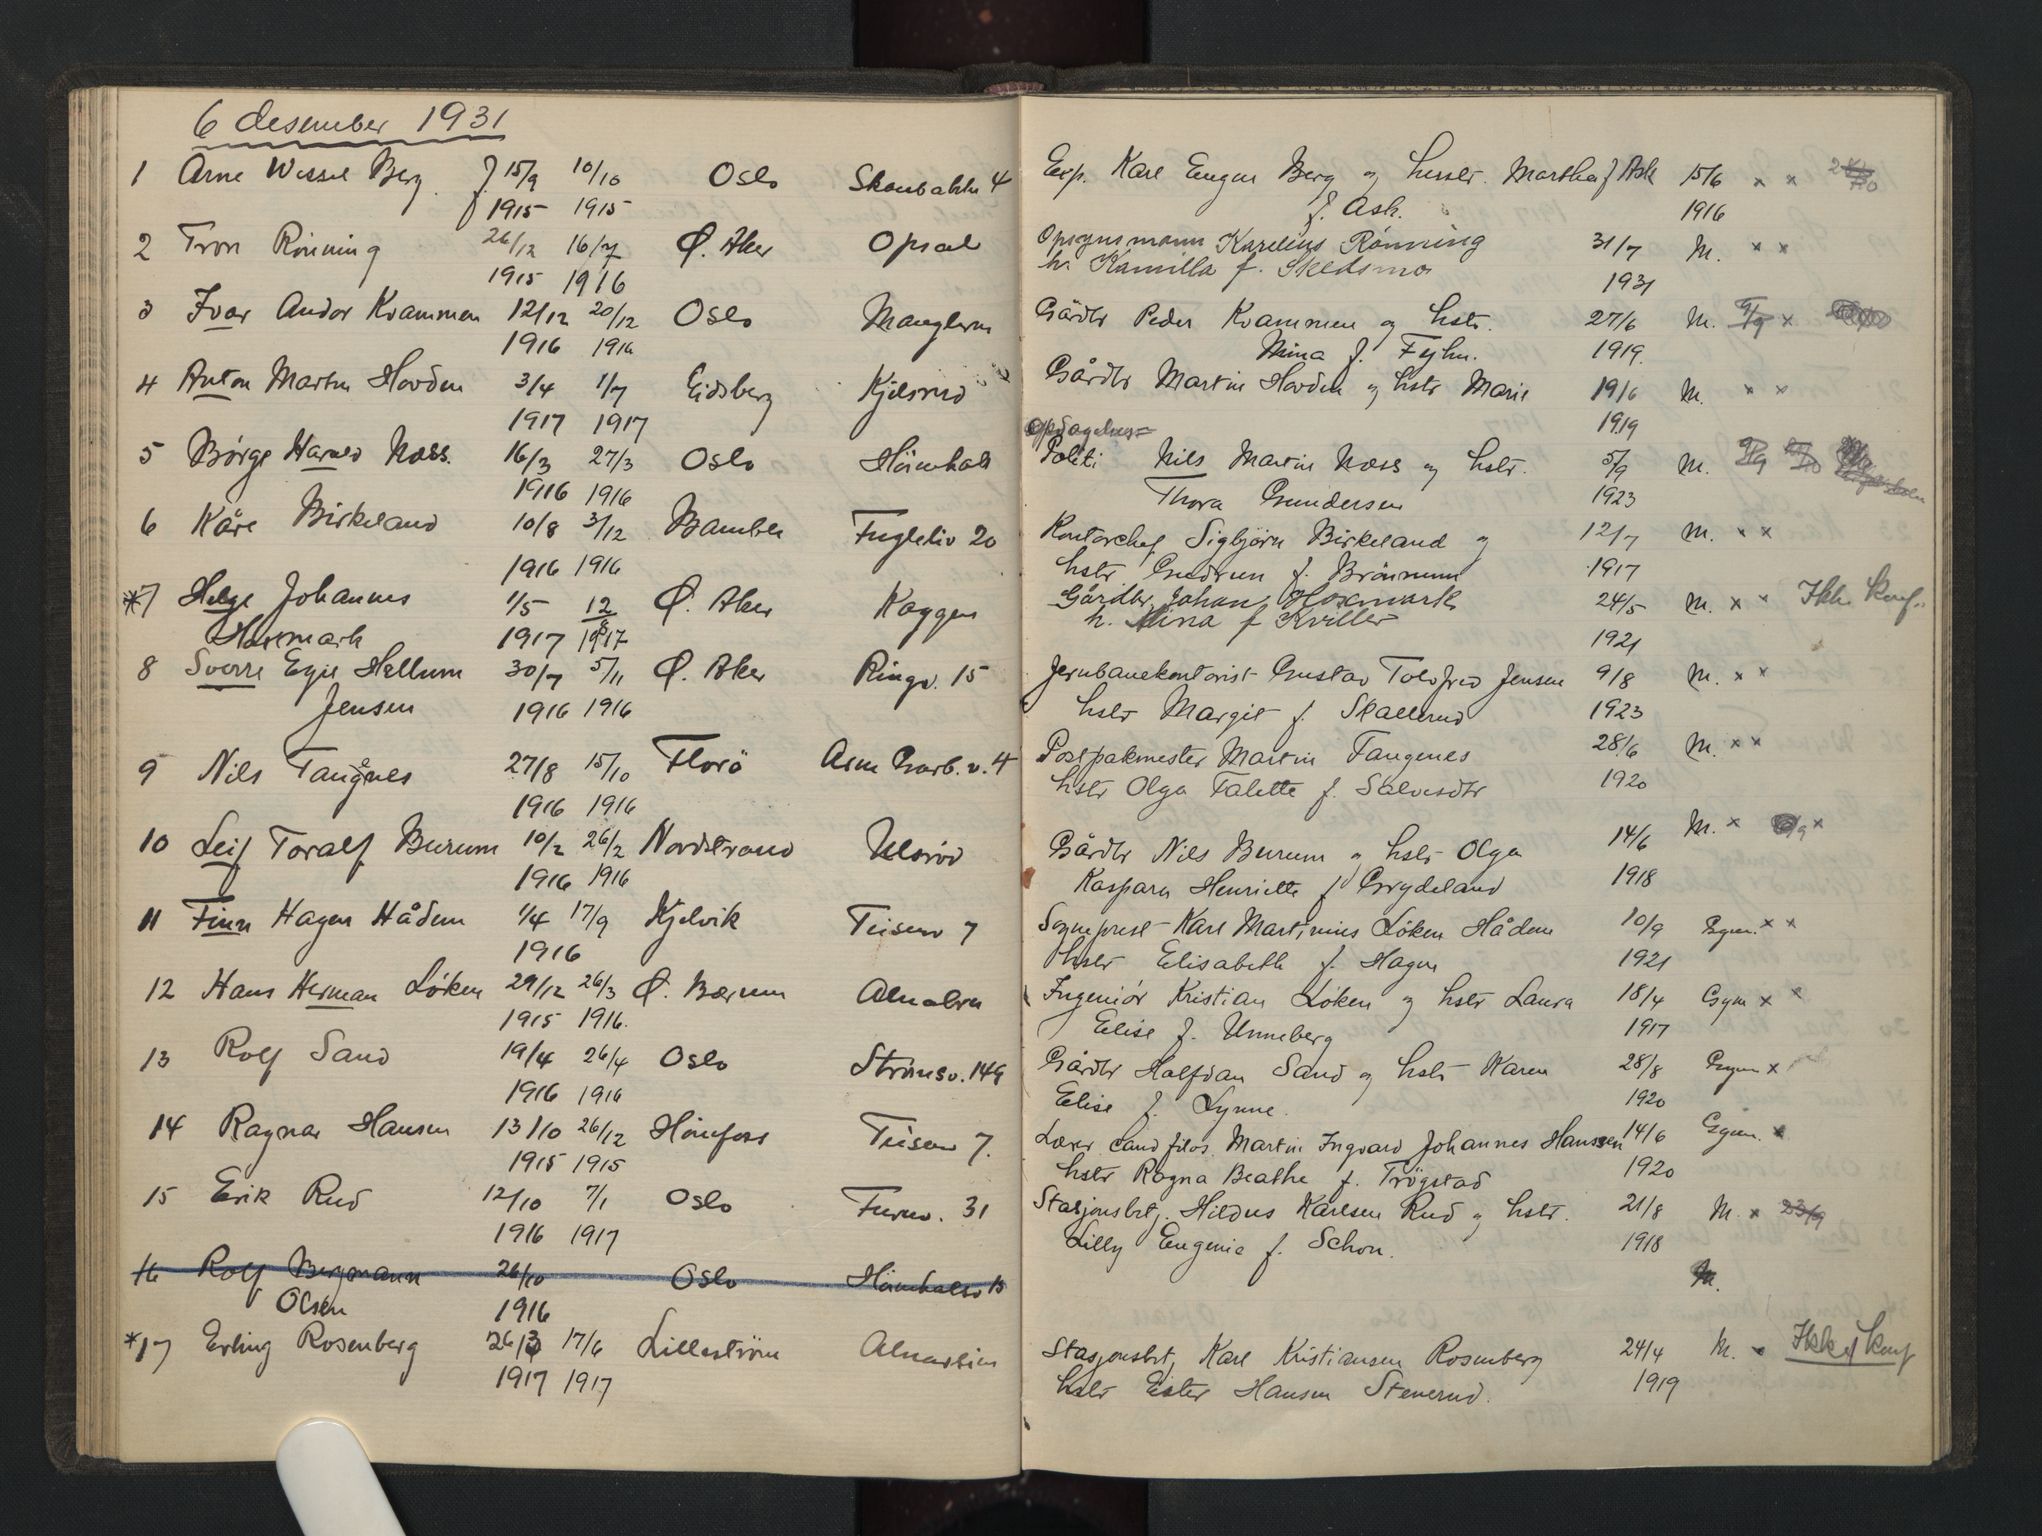 6 desember 1931
1 Arne Wessel Berg f 15/9 10/10 Oslo Skoubakken 4
1915 1915
2 Tron Rönning 26/12 16/7 Ø. Aker Opsal
1915 1916
3 Ivar Andor Kvammen 12/12 20/12 Oslo Manglerud
1916 1916
4 Anton Martin Hovden 3/4 1/7 Eidsberg Kjelsrud
1917 1917
5 Børge Harald Næss. 16/3 27/3 Oslo
1916 1916
6 Kåre Birkeland 10/8 3/12 Bamble Fugleliv 20
1916 1916
*7 Helge Johannes 1/5 12/8 Ø. Aker Kaggen
Hoxmark 1917 1917
8 Sverre Egil Hellum 30/7 5/11 Ø. Aker Ringv. 15
Jensen 1916 1916
9 Nils Tangenes 27/8 15/10 Florö Arne Garb. v. 4
1916 1916
10 Leif Toralf Burum 10/2 26/2 Nordstrand Ulsrød
1916 1916
11 Finn Hagen Hådem 1/4 17/9 Kjelvik Teisenv 7
1916
12 Hans Herman Løken 29/12 26/3 Ø. Bærum Alnabru
1915 1916.
13 Rolf Sand 19/4 26/4 Oslo Strømsv. 149
1916 1916
14 Ragnar Hansen 13/10 26/12 Hönefoss Teisenv 7.
1915 1915
15 Erik Rud 12/10 7/1 Oslo Furuv. 31
1916 1917
16 Rolf Bergmann 26/10 Oslo
Olsen 1916
*17 Erling Rosenberg 26/3 17/6 Lilleström
1917 1917
Exp. Karl Eugen Berg og hustr. Martha f Ask 15/6 x x
f. Ask. 1916
Opsynsmann Karelius Rönning 31/7 M. x x
h. Kamilla f. Skedsmo 1931
Gårdbr Peder Kvammen og hstr. 27/6 M. 9/9 x
Mina f. 1919.
Gårdbr Martin Hovden og hstr Marie 19/6 M. x x
1919
Opdagelses=
Politi Nils Martin Næss og hstr. 5/9 M. 9/9
Thora Gundersen 1923
Kontorchef Sigbjörn Birkeland og 12/7 M. x x
hstr Gudrun f. Brönmum 1917
Gårdbr. Johan Hoxmark 24/5 M. x x Ikke konf.
h. Mina f Kviller 1921
Jernbanekontorist Gustav Tolofred Jensen 9/8 M. x x
hstr Margit f. Skallerud 1923
Postpakmester Martin Tangenes 28/6 M. x x
hstr Olga Talette f. Salvesdtr 1920
Gårdbr Nils Burum og hstr Olga 14/6 M. x x
Kaspara Henriette f Grydeland 1918
Sogneprest Karl Martinius Löken Hådem 10/9 Gym. x x
hstr Elisabeth f. Hagen 1921
Ingeniör Kristian Løken og hstr Laura 18/4 Gym x x
Elise f. Unneberg 1917
Gårdbr Halfdan Sand og hstr Karen 28/8 Gym x
Elise f. Lynne. 1920
Lærer cand filos. Martin Ingvard Johannes Hanssen 14/6 Gym. x
hstr Ragna Beathe f. Trögstad 1920
Stasjonsbtj. Hildus Karlsen Rud og hstr. 21/8 M. x 23/9
Lilly Eugenie f. Schou. 1918
M.
Stasjonsbt, Karl Kristiansen Rosenberg 24/4 M. x Ikke konf
hstr Ester Hansen Stenerud. 1919